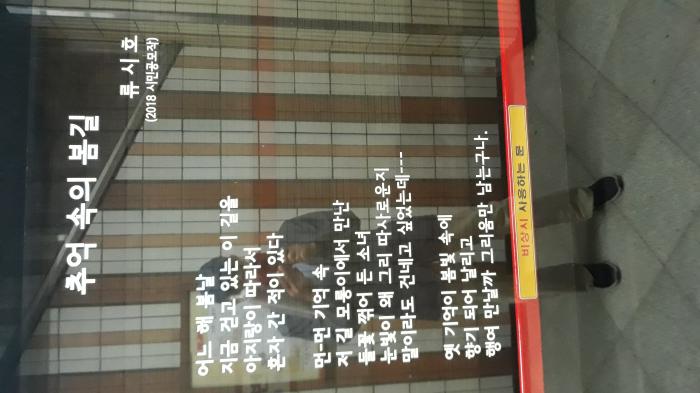 추억 속의 봄길
류 시 호
(2018 시민공모작)
어느 해 봄날
지금 걷고 있는 이 길을
아지랑이 따라서
혼자 간 적이 있다
먼-먼 기억 속
저 길 모퉁이에서 만난
들꽃 꺾어 든 소녀
눈빛이 왜 그리 따사로운지
말이라도 건네고 싶었는데---
옛 기억이 봄빛 속에
향기 되어 날리고
행여 만날까 그리움만 남는구나.
비상시 사용하는 문